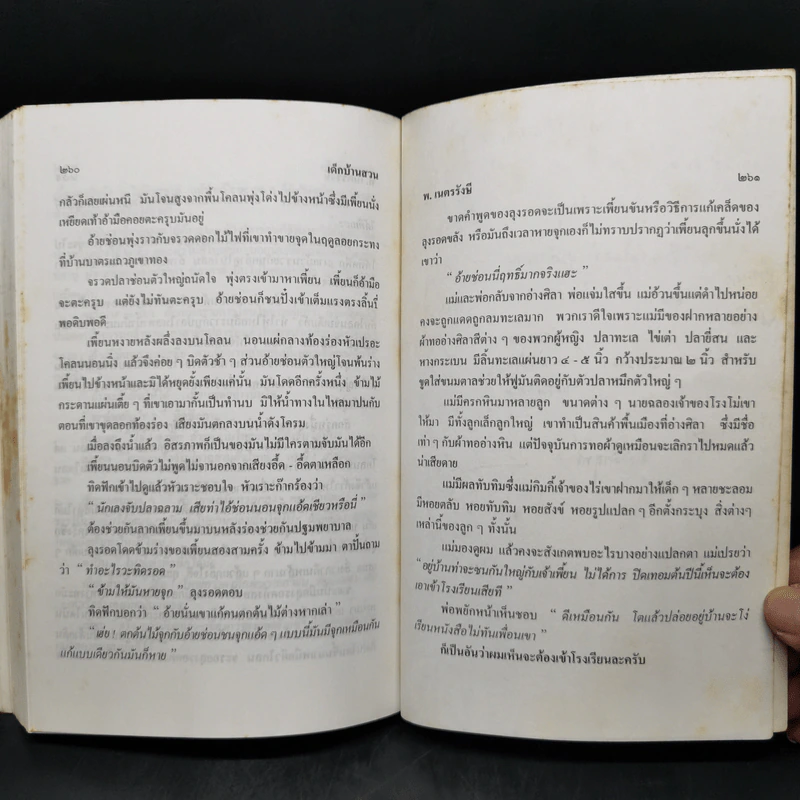 ๒๖๐
เด็กบ้านสวน
กลัวก็เลยเผ่นหนี มันโจนสูงจากพื้นโคลนพุ่งโด่งไปข้างหน้าซึ่งมีเพี้ยนนั่ง
เหยียดเท้าอ้ามือคอยตะครุบมันอยู่
อ้ายช่อนพุ่งราวกับจรวดดอกไม้ไฟที่เขาทำขายจุดในฤดูลอยกระทง
ที่บ้านบาตรแถวภูเขาทอง
จรวดปลาช่อนตัวใหญ่ถนัดใจ พุ่งตรงเข้ามาหาเพี้ยน เพี้ยนก็อ้ามือ
จะตะครุบ แต่ยังไม่ทันตะครุบ อ้ายช่อนก็ชนปังเข้าเต็มแรงตรงลิ้นปี่
พอดิบพอดี
เพี้ยนหงายหลังผลึ่งลงบนโคลน นอนแผ่กลางท้องร่องหัวเปรอะ
โคลนนอนนิ่ง แล้วจึงค่อย ๆ บิดตัวช้า ๆ ส่วนอ้ายช่อนตัวใหญ่โจนพ้นร่าง
เพี้ยนไปข้างหน้าและมิได้หยุดยั้งเพียงแค่นั้น มันโดดอีกครั้งหนึ่ง ข้ามไม้
กระดานแผ่นเตี้ย ๆ ที่เขาเอามากั้นเป็นทำนบ มิให้น้ำทางในไหลมาปนกับ
ตอนที่เขาขุดลอกท้องร่อง เสียงมันตกลงบนน้ำดังโครม
เมื่อลงถึงน้ำแล้ว อิสรภาพก็เป็นของมันไม่มีใครตามจับมันได้อีก
เพี้ยนนอนบิดตัวไม่พูดไม่จานอกจากเสียงอื๊ด - อื๊ดตาเหลือก
ทิดฟักเข้าไปดูแล้วหัวเราะชอบใจ หัวเราะก๊ากร้องว่า
“ นักเลงจับปลาฉลาม เสียท่าไอ้ช่อนนอนจุกแอ้ดเชียวหรือนี่ ”
ต้องช่วยกันลากเพี้ยนขึ้นมาบนหลังร่องช่วยกันปฐมพยาบาล
ลุงรอดโดดข้ามร่างของเพี้ยนสองสามครั้ง ข้ามไปข้ามมา ตาปั้นถาม
ว่า “ ทำอะไรวะทิดรอด ”
“ ข้ามให้มันหายจุก ” ลุงรอดตอบ
ทิดฟักบอกว่า “ อ้ายนั่นเขาแก้คนตกต้นไม้ต่างหากเล่า ”
“เฮ่ย ! ตกต้นไม้จุกกับอ้ายช่อนชนจุกแอ้ด ๆ แบบนี้มันมีจุกเหมือนกัน
แก้แบบเดียวกันมันก็หาย ”
พ. เนตรรังษี
๒๖๑
ขาดคำพูดของลุงรอดจะเป็นเพราะเพี้ยนขันหรือวิธีการแก้เคล็ดของ
ลุงรอดขลัง หรือมันถึงเวลาหายจุกเองก็ไม่ทราบปรากฏว่าเพี้ยนลุกขึ้นนั่งได้
เขาว่า
“ อ้ายช่อนนี่ฤทธิ์มากจริงแฮะ ”
แม่และพ่อกลับจากอ่างศิลา พ่อแจ่มใสขึ้น แม่อ้วนขึ้นแต่ดำไปหน่อย
คงจะถูกแดดถูกลมทะเลมาก พวกเราดีใจเพราะแม่มีของฝากหลายอย่าง
ผ้าทออ่างศิลาสีต่าง ๆ ของพวกผู้หญิง ปลาทะเล ไข่เต่า ปลายี่สน และ
หางกระเบน มีลิ้นทะเลแผ่นยาว ๔ - ๕ นิ้ว กว้างประมาณ ๒ นิ้ว สำหรับ
ขูดใส่ขนมตาลช่วยให้ฟูมันติดอยู่กับตัวปลาหมึกตัวใหญ่ ๆ
แม่มีครกหินมาหลายลูก ขนาดต่าง ๆ นายฉลองเจ้าของโรงโม่เขา
ให้มา มีทั้งลูกเล็กลูกใหญ่ เขาทำเป็นสินค้าพื้นเมืองที่อ่างศิลา ซึ่งมีชื่อ
เท่า ๆ กับผ้าทออ่างหิน แต่ปัจจุบันการทอผ้าดูเหมือนจะเลิกราไปหมดแล้ว
น่าเสียดาย
แม่มีผลทับทิมซึ่งแม่กิมกี่เจ้าของไร่เขาฝากมาให้เด็ก ๆ หลายชะลอม
มีหอยตลับ หอยทับทิม หอยสังข์ หอยรูปแปลก ๆ อีกตั้งกระบุง สิ่งต่างๆ
เหล่านี้ของลูก ๆ ทั้งนั้น
แม่มองดูผม แล้วคงจะสังเกตพบอะไรบางอย่างแปลกตา แม่เปรยว่า
“อยู่บ้านท่าจะซนกันใหญ่กับเจ้าเพี้ยน ไม่ได้การ ปิดเทอมต้นปีนี้เห็นจะต้อง
เอาเข้าโรงเรียนเสียที ”
พ่อพยักหน้าเห็นชอบ “ ดีเหมือนกัน โตแล้วปล่อยอยู่บ้านจะโง่
เรียนหนังสือไม่ทันเพื่อนเขา ”
ก็เป็นอันว่าผมเห็นจะต้องเข้าโรงเรียนละครับ